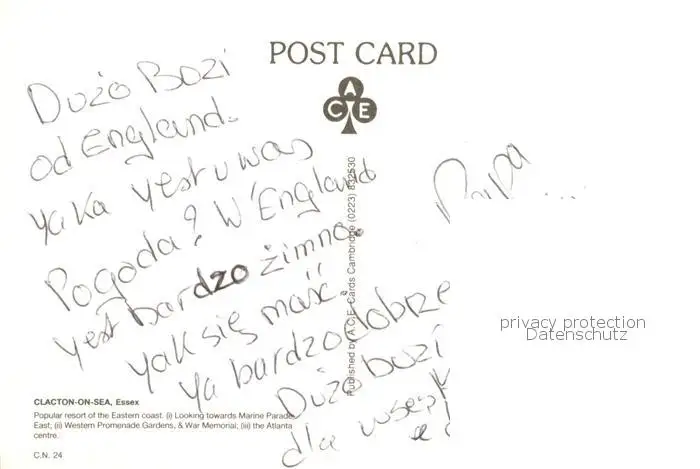 POST CARD
A
C E
Dużo Bozi
od England.
yaka yest u was
Pogoda? W England
yest bardzo żimno.
yak się masż.
ya bardzo dobre
Dużo bozi
dla wsesk
Papa
Published by A.C.E. Cards Cambridge (0223)
privacy protection
Datenschutz
CLACTON-ON-SEA, Essex
Popular resort of the Eastern coast. (i) Looking towards Marine Parade
East; (ii) Western Promenade Gardens, & War Memorial; (iii) the Atlanta
centre.
C.N. 24